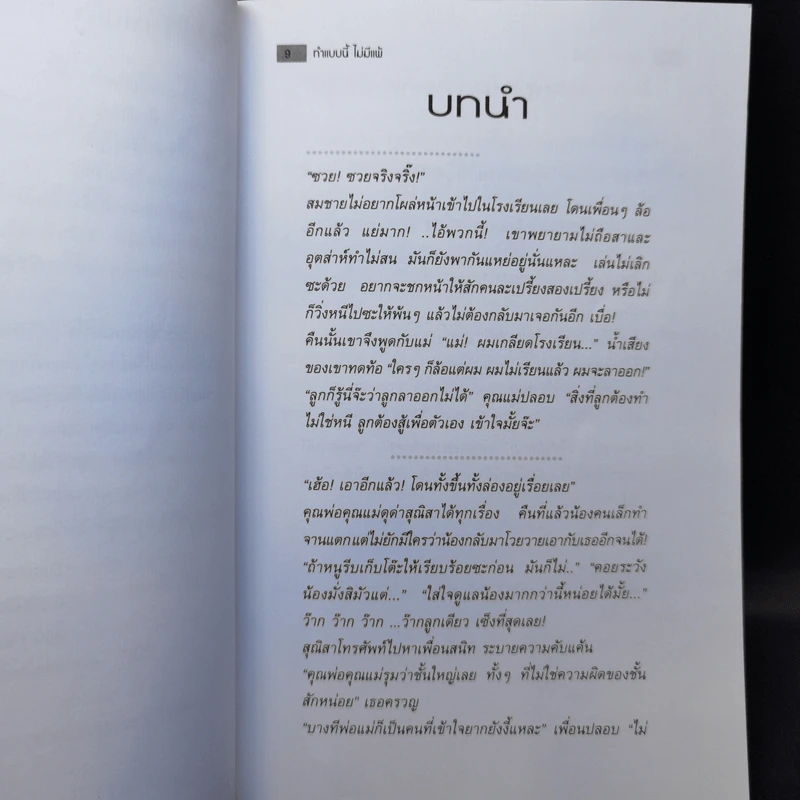 9 ทำแบบนี้ ไม่มีแพ้
บทนำ
“ซวย! ซวยจริงจริ๊ง!”
สมชายไม่อยากโผล่หน้าเข้าไปในโรงเรียนเลย โดนเพื่อนๆ ล้อ
อีกแล้ว แย่มาก! ..ไอ้พวกนี้! เขาพยายามไม่ถือสาและ
อุตส่าห์ทำไม่สน มันก็ยังพากันแหย่อยู่นั่นแหละ เล่นไม่เลิก
ซะด้วย อยากจะชกหน้าให้สักคนละเปรี้ยงสองเปรี้ยง หรือไม่
ก็วิ่งหนีไปซะให้พ้นๆ แล้วไม่ต้องกลับมาเจอกันอีก เบื่อ!
คืนนั้นเขาจึงพูดกับแม่ “แม่! ผมเกลียดโรงเรียน...” น้ำเสียง
ของเขาทดท้อ “ใครๆ ก็ล้อแต่ผม ผมไม่เรียนแล้ว ผมจะลาออก!”
“ลูกก็รู้นี่จ๊ะว่าลูกลาออกไม่ได้” คุณแม่ปลอบ “สิ่งที่ลูกต้องทำ
ไม่ใช่หนี ลูกต้องสู้เพื่อตัวเอง เข้าใจมั้ยจ๊ะ”
“เฮ้อ! เอาอีกแล้ว! โดนทั้งขึ้นทั้งล่องอยู่เรื่อยเลย”
คุณพ่อคุณแม่ดุด่าสุณิสาได้ทุกเรื่อง คืนที่แล้วน้องคนเล็กทำ
จานแตกแต่ไม่ยักมีใครว่าน้องกลับมาโวยวายเอากับเธออีกจนได้!
“ถ้าหนูรีบเก็บโต๊ะให้เรียบร้อยซะก่อน มันก็ไม่..” “คอยระวัง
น้องมั่งสิมัวแต่...” “ใส่ใจดูแลน้องมากกว่านี้หน่อยได้มั้ย...”
ว๊าก ว๊าก ว๊าก ...ว๊ากลูกเดียว เซ็งที่สุดเลย!
สุณิสาโทรศัพท์ไปหาเพื่อนสนิท ระบายความคับแค้น
“คุณพ่อคุณแม่รุมว่าชั้นใหญ่เลย ทั้งๆ ที่ไม่ใช่ความผิดของชั้น
สักหน่อย” เธอครวญ
“บางทีพ่อแม่ก็เป็นคนที่เข้าใจยากยังงี้แหละ” เพื่อนปลอบ “ไม่